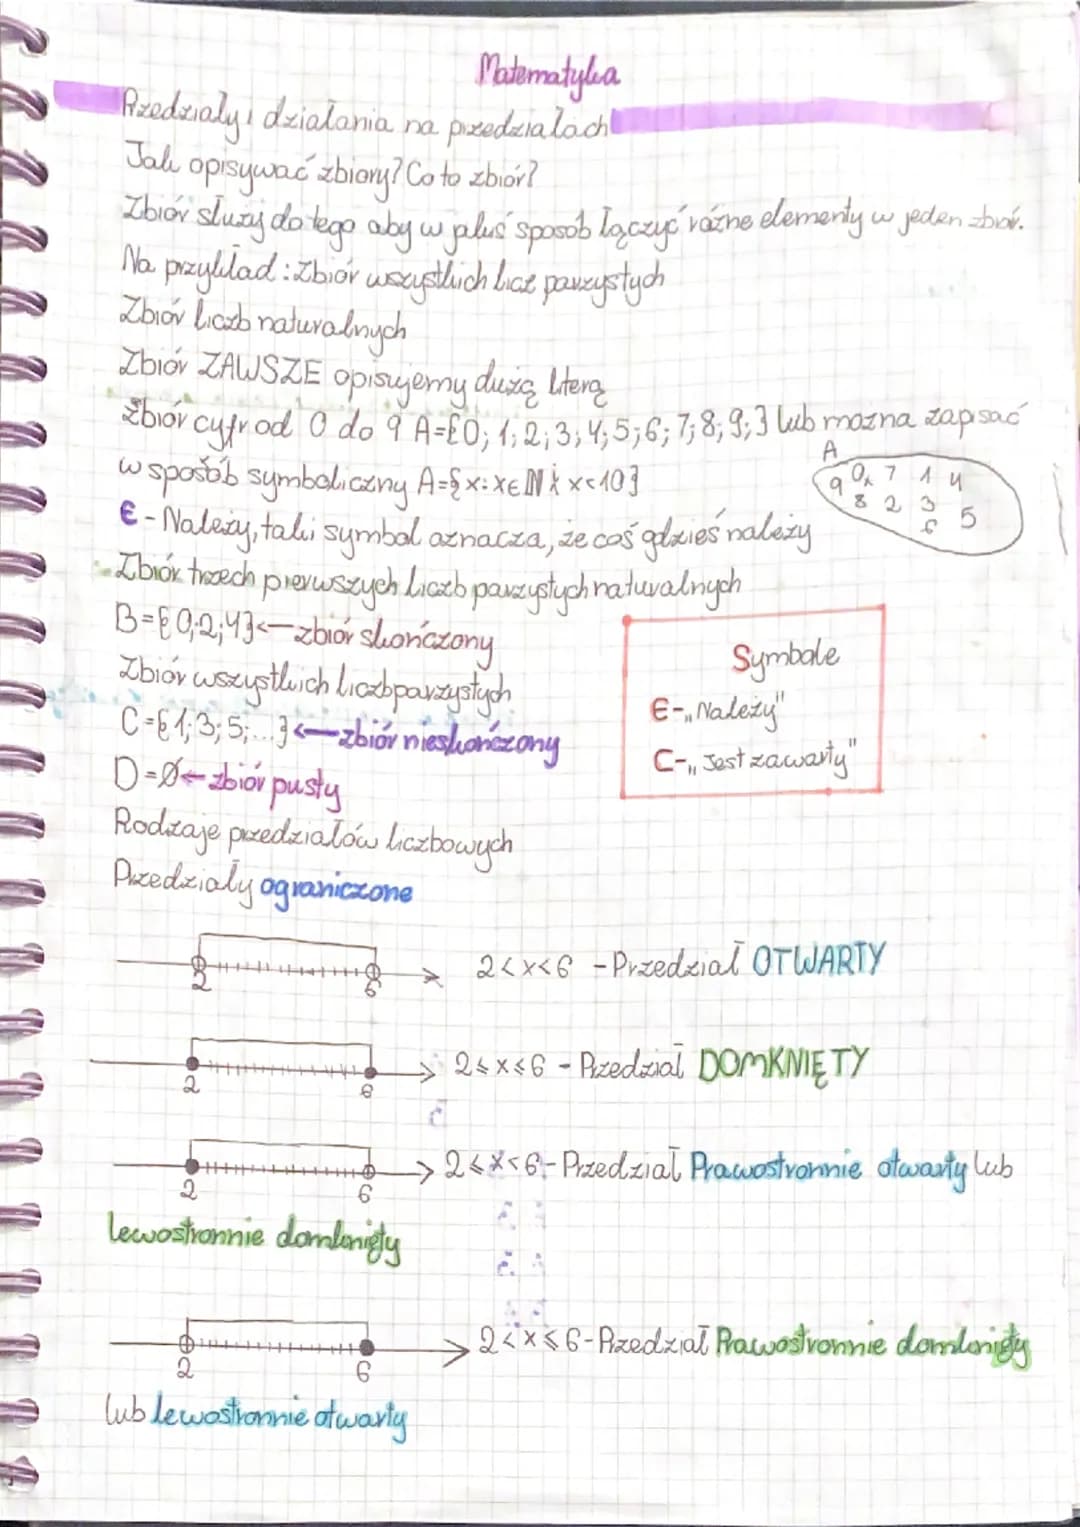 Matematyka
Przedziały i działania na przedziałach
Jak opisywać zbiory? Co to zbiór?
Zbiór służy do tego aby w jakiś sposób łączyć różne elementy w jeden zbiór.
Na przykład: Zbiór wszystkich licz parzystych
Zbiór liczb naturalnych
Zbiór ZAWSZE opisujemy dużą literą
Zbiór cyfr od 0 do 9 A={0; 1; 2; 3; 4; 5; 6; 7; 8; 9;} lub można zapisać
w sposób symboliczny A={x: x∈ℕ i x<10}
A
9 0 7 1 4
8 2 3
6 5
∈ - Należy, taki symbol oznacza, że coś gdzieś należy
Zbiór trzech pierwszych liczb parzystych naturalnych
B={0;2;4}← zbiór skończony
Zbiór wszystkich liczb parzystych
C={1; 3; 5; ...}← zbiór nieskończony
D=Ø← zbiór pusty
Symbole
∈-„Należy"
⊂-„Jest zawarty"
Rodzaje przedziałów liczbowych
Przedziały ograniczone
2<x<6 - Przedział OTWARTY
2 6
2⩽x⩽6 - Przedział DOMKNIĘTY
2 6
2⩽x<6 - Przedział Prawostronnie otwarty lub
2 6
lewostronnie domknięty
2<x⩽6 - Przedział Prawostronnie domknięty
2 6
lub lewostronnie otwarty